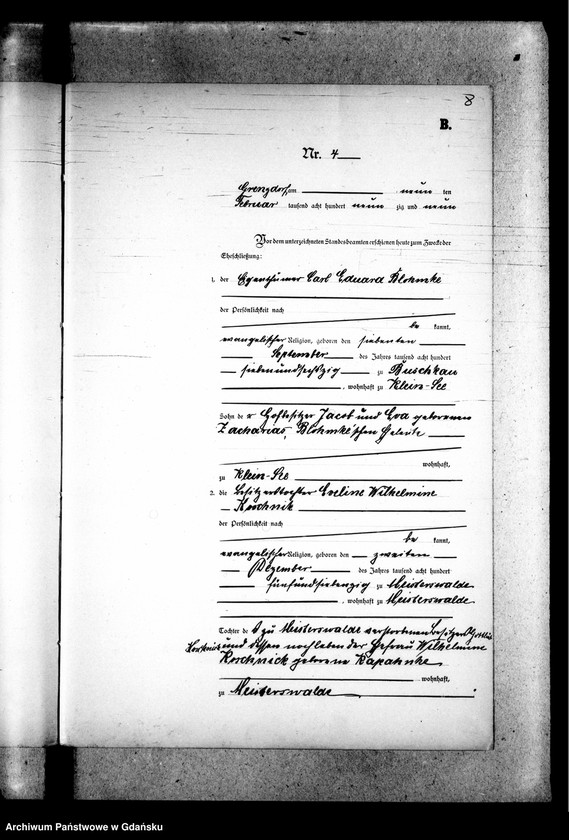 8
B.
Nr. 4
Grenzdorf, am neun ten
Februar tausend acht hundert neun zig und neun
Vor dem unterzeichneten Standesbeamten erschienen heute zum Zwecke der
Eheschließung:
1. der Eigenthümer Carl Eduard Blohmke
der Persönlichkeit nach
be kannt,
evangelischer Religion, geboren den siebenten
September des Jahres tausend acht hundert
siebenundsechszig zu Buschkau
, wohnhaft zu Klein-See
Sohn de r Hofbesitzer Jacob und Eva geborenen
Zacharias, Blohmke'schen Eheleute
wohnhaft,
zu Klein-See
2. die Besitzertochter Eveline Wilhelmine
Koschnik
der Persönlichkeit nach
be kannt,
evangelischer Religion, geboren den zweiten
Dezember des Jahres tausend acht hundert
fünfundsiebenzig zu Meisterswalde
, wohnhaft zu Meisterswalde
Tochter de s zu Meisterswalde verstorbenen Besitzers Gottlieb
Koschnick und dessen noch lebender Ehefrau Wilhelmine
Koschnick geborene Kapahnke
wohnhaft,
zu Meisterswalde
Archiwum Państwowe w Gdańsku